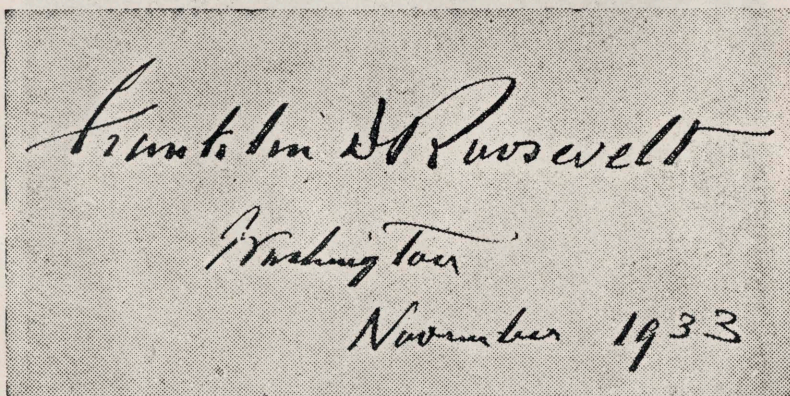 Franklin D Roosevelt
Washington
November 1933